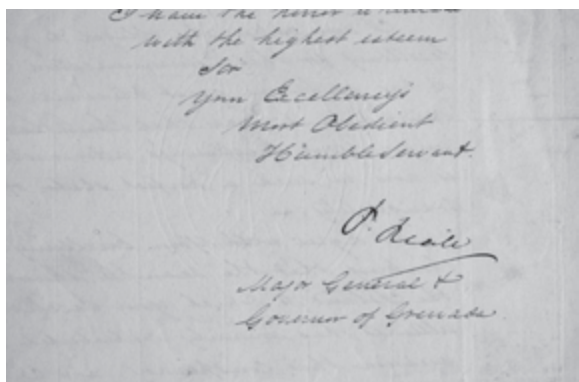 I have the honor
with the highest esteem
Sir
Your Excellency's
Most Obedient
Humble Servant.
P. Riall
Major General &
Governor of Grenada